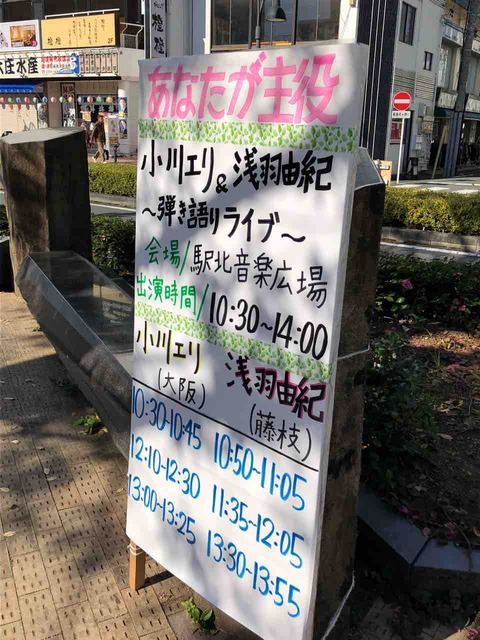 あなたが主役
小川エリ&浅羽由紀
〜弾き語りライブ〜
会場/駅北音楽広場
出演時間/10:30〜14:00
小川エリ 浅羽由紀
(大阪) (藤枝)
10:30-10:45 10:50-11:05
12:10-12:30 11:35-12:05
13:00-13:25 13:30-13:55
庄水産